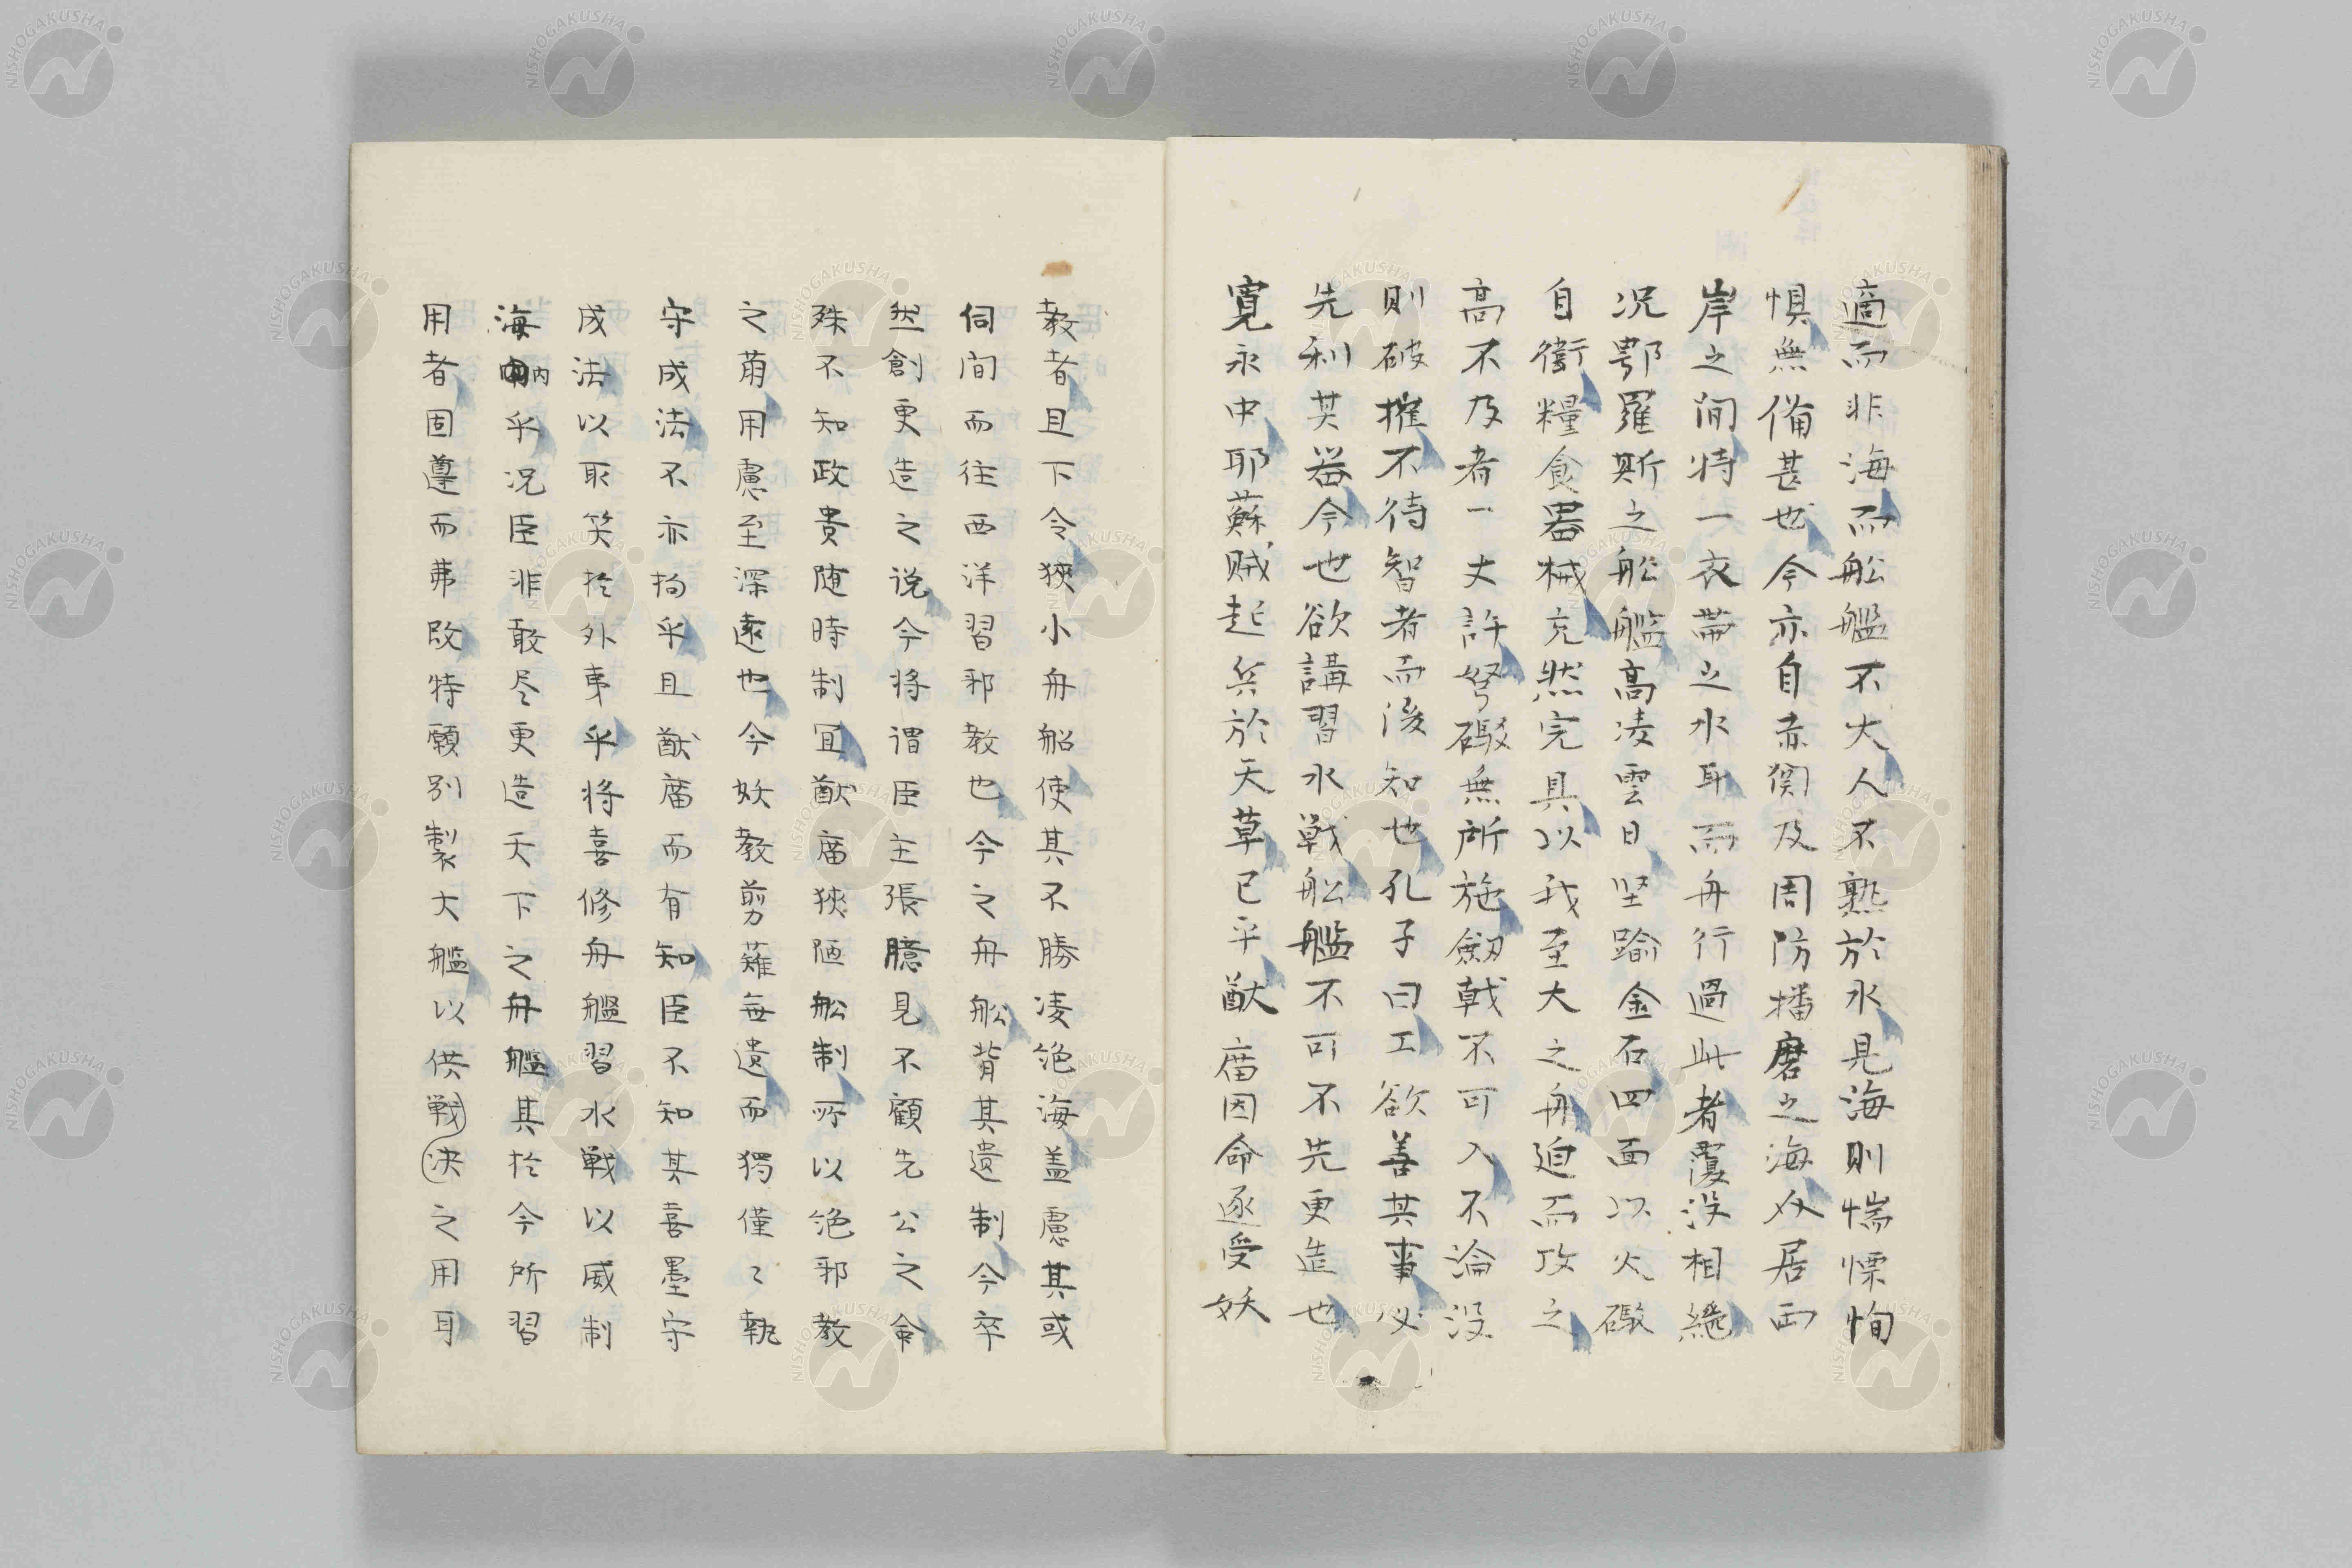 適而非海而舩艦不大人不熟於水見海則惴慄恂
惧無備甚也今亦自赤関及周防播磨之海又居両
岸之間特一衣帯之水耳而舟行過此者覆没相繞
况鄂羅斯之舩艦高凌雲日堅踰金石四面以火礮
自衛糧食器械充然完具以我至大之舟迫而攻之
高不及者一丈許弩礮無所施劔戟不可入不淪没
則破摧不待智者而後知也孔子曰工欲善其事必
先利其器今也欲講習水戦舩艦不可不先更造也
寛永中耶蘇賊起兵於天草已平猷庿因命逐受妖
教者且下令狹小舟船使其不勝凌絶海盖慮其或
伺間而往西洋習邪教也今之舟舩背其遺制今卒
然創更造之说今将谓臣主張臆見不顧先公之命
殊不知政貴随時制冝猷庿狹陋舩制所以絶邪教
之萠用慮至深遠也今妖教剪薙無遺而獨僅〻執
守成法不亦拘乎且猷庿而有知臣不知其喜墨守
成法以取笑於外夷乎将喜修舟艦習水戦以威制
海内乎况臣非敢尽更造天下之舟艦其於今所習
用者固遵而弗改特願別製大艦以供戦决之用耳
NISHOGAKUSHA